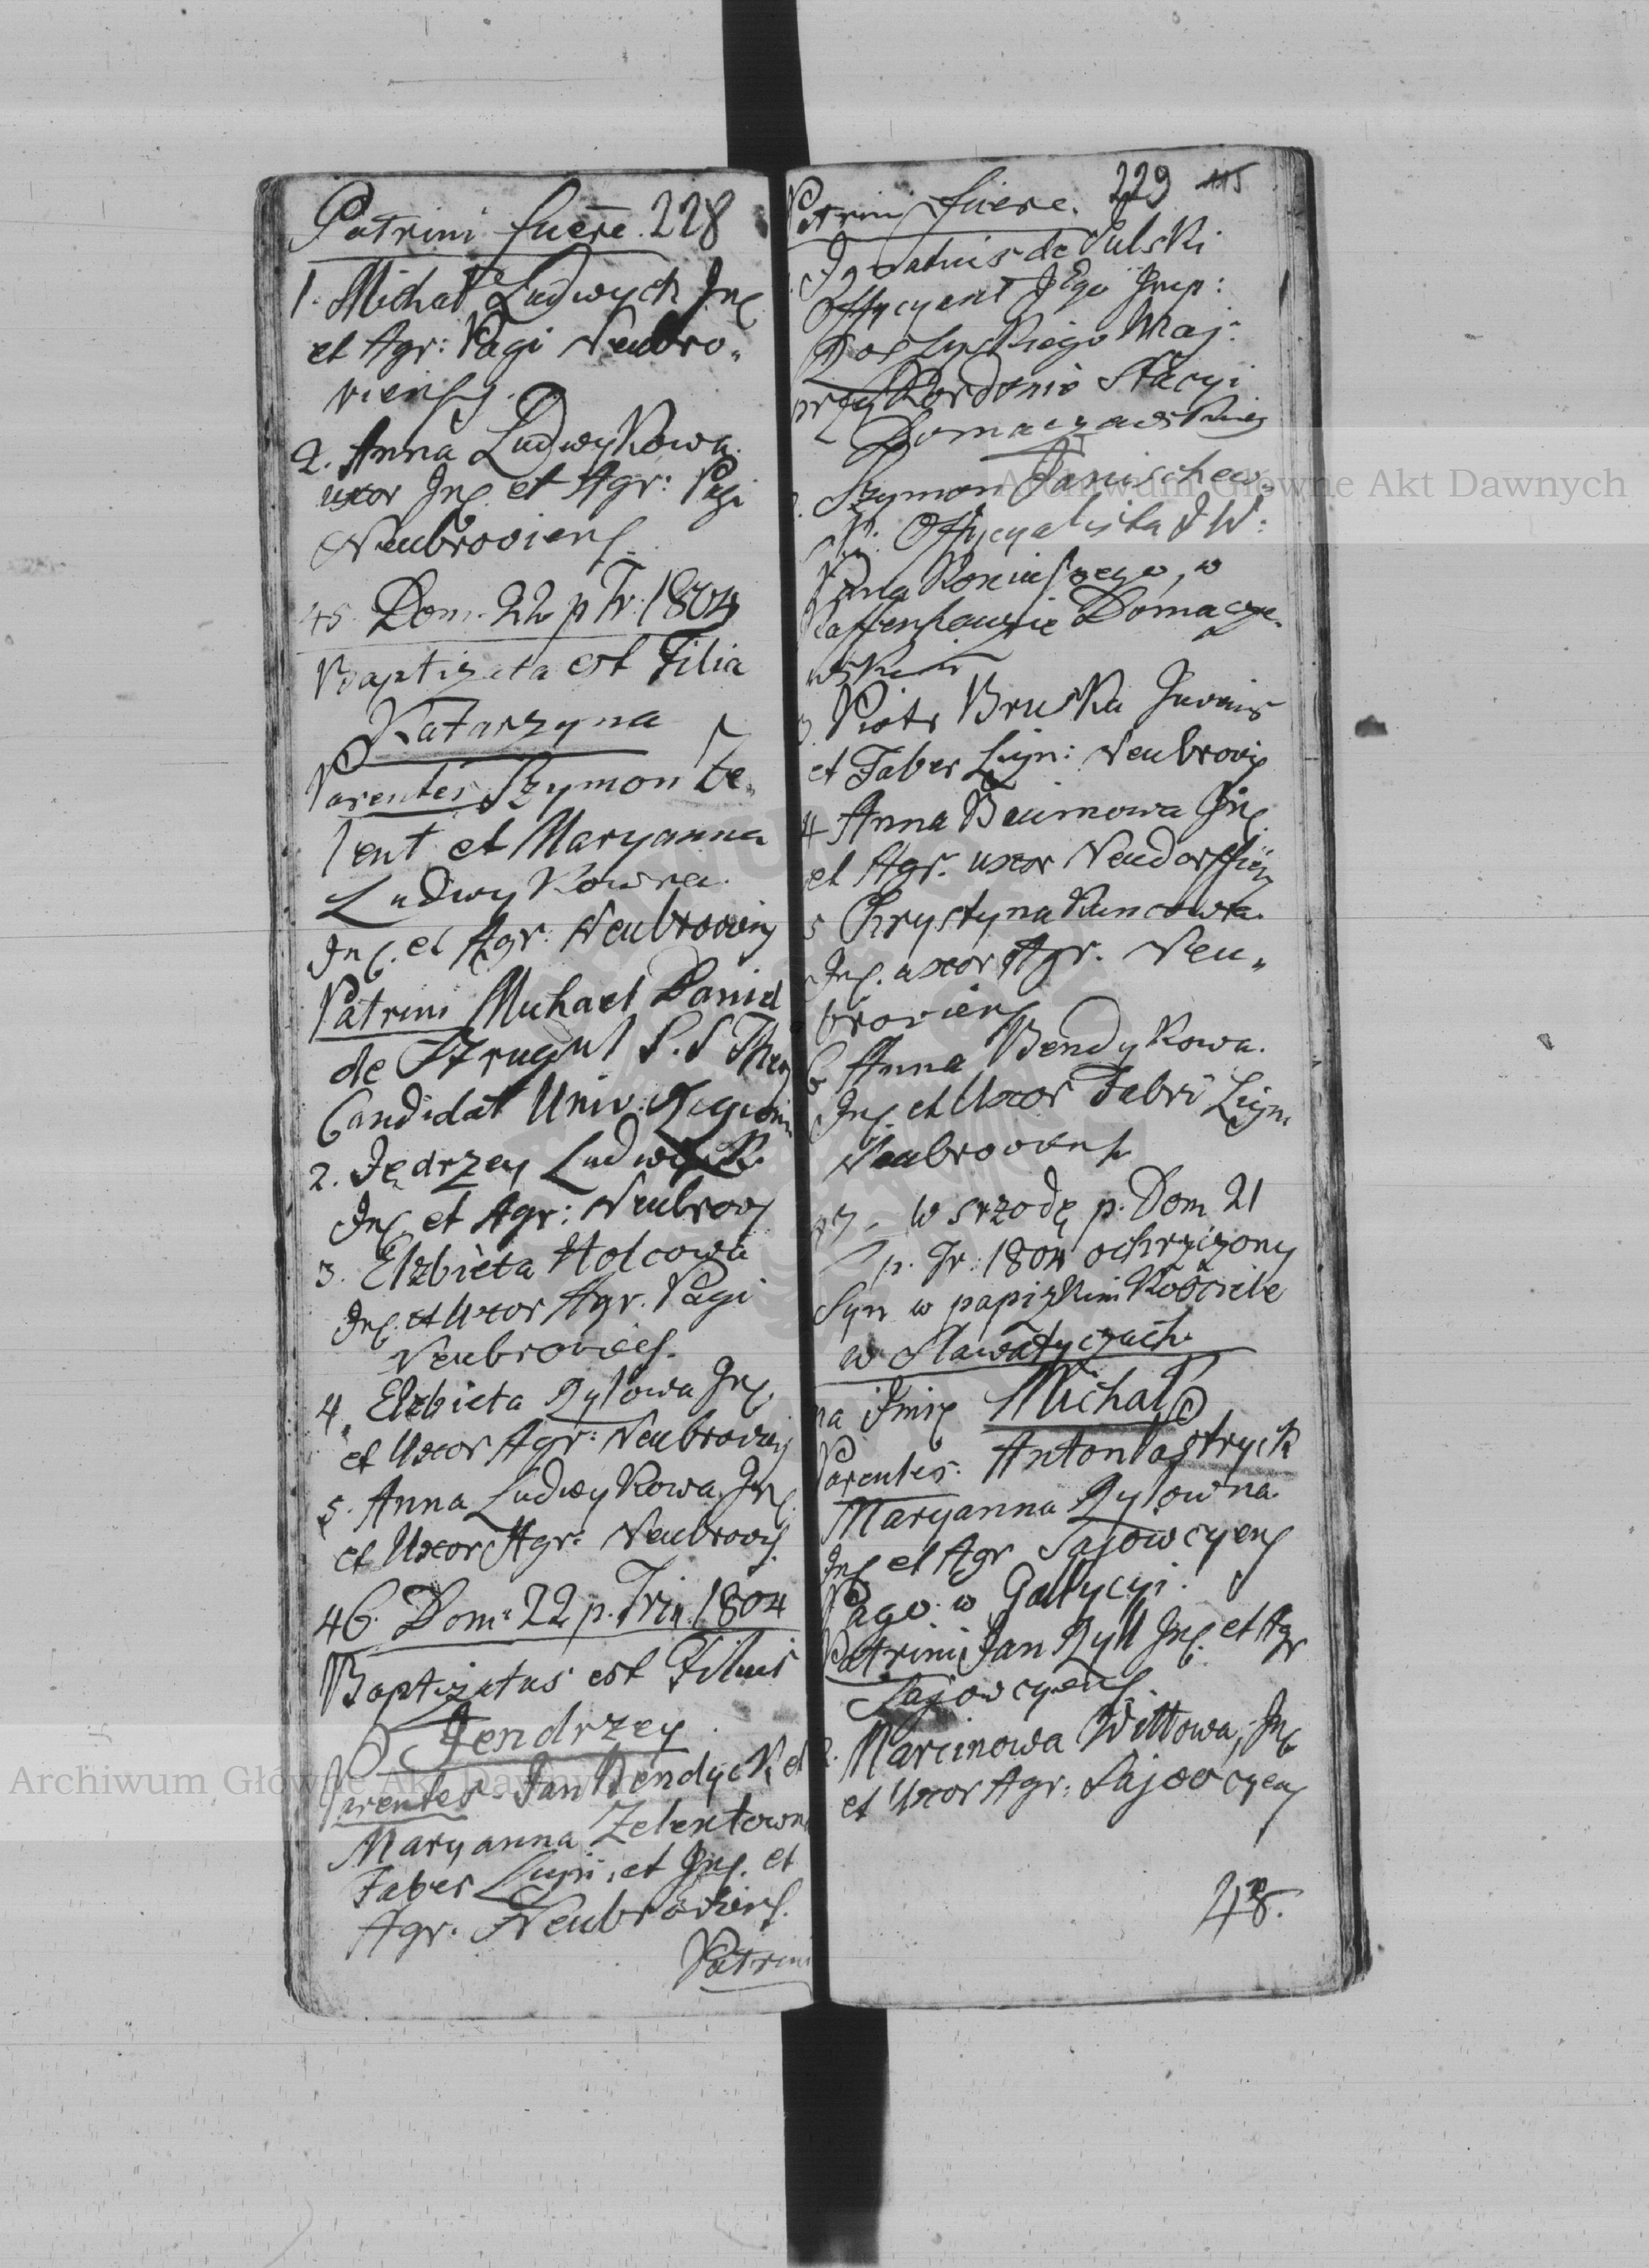 Patrini fuere. 228
1. Michał Ludwych Inq
et Agr: Pagi Neubro„
viensq.
2. Anna Ludwykowa
uxor Inq. et Agr: Pagi
Neubroviens.
45. Dom. 22 p Tr: 1804
Baptizata est Filia
Katarzyna
Parentes Szymon Ze„
lent et Maryanna
Ludwykowna.
Inq. et Agr: Neubroviens
Patrini Michael Daniel
de S. S Theo
Candidat Univ:
2. Jędrzey Ludwyk
Inq et Agr: Neubrov
3. Elzbieta Holcowa
Inq. et Uxor Agr. Pagi
Neubrovies.
4. Elzbieta Rylowa Inq.
et Uxor Agr: Neubrovien
5. Anna Ludwykowa Inq.
et Uxor Agr: Neubrovs.
46. Dom: 22 p. Trin. 1804
Baptizatus est Filius
Jendrzey
Parentes Jan Bendyck et
Maryanna Zelentowna
Faber Lign, et Inq. et
Agr. Neubroviens.
Patrini
Patrini fuere. 229 115
Ignatius de Pulski
Offycyent Jego Imp:
Maj:
przy Kordonie Stacyi
Domaczewskiey
Szymon Janischew„
Offycyalista J W:
Pana w
Domacze„
wskim
3. Piotr Bruska Juvenis
et Faber Lign: Neubrovis
4 Anna Beumowa Inq.
et Agr. uxor Neudorffien
5 Chrystyna Kuncowa
Inq. uxor Agr. Neu„
broviens
6 Anna Bendykowa.
Inq et Uxor Fabri Lign.
Neubroviens
47. w srzodę p. Dom 21
p. Tr: 1804 ochrzczony
Syn w papizkim Kościele
w Sławatyczach.
na imię Michał
Parentes. Anton Pastryck
Maryanna Rylowna
Inq et Agr Sajowcyens
Pago w Gallycyi.
Patrini Jan Ryll Inq. et Agr
Sajowcyens.
2. Marcinowa Wittowa, Inq
et Uxor Agr: Sajowcyens
48.
Archiwum Główne Akt Dawnych
Archiwum Główne Akt Dawnych